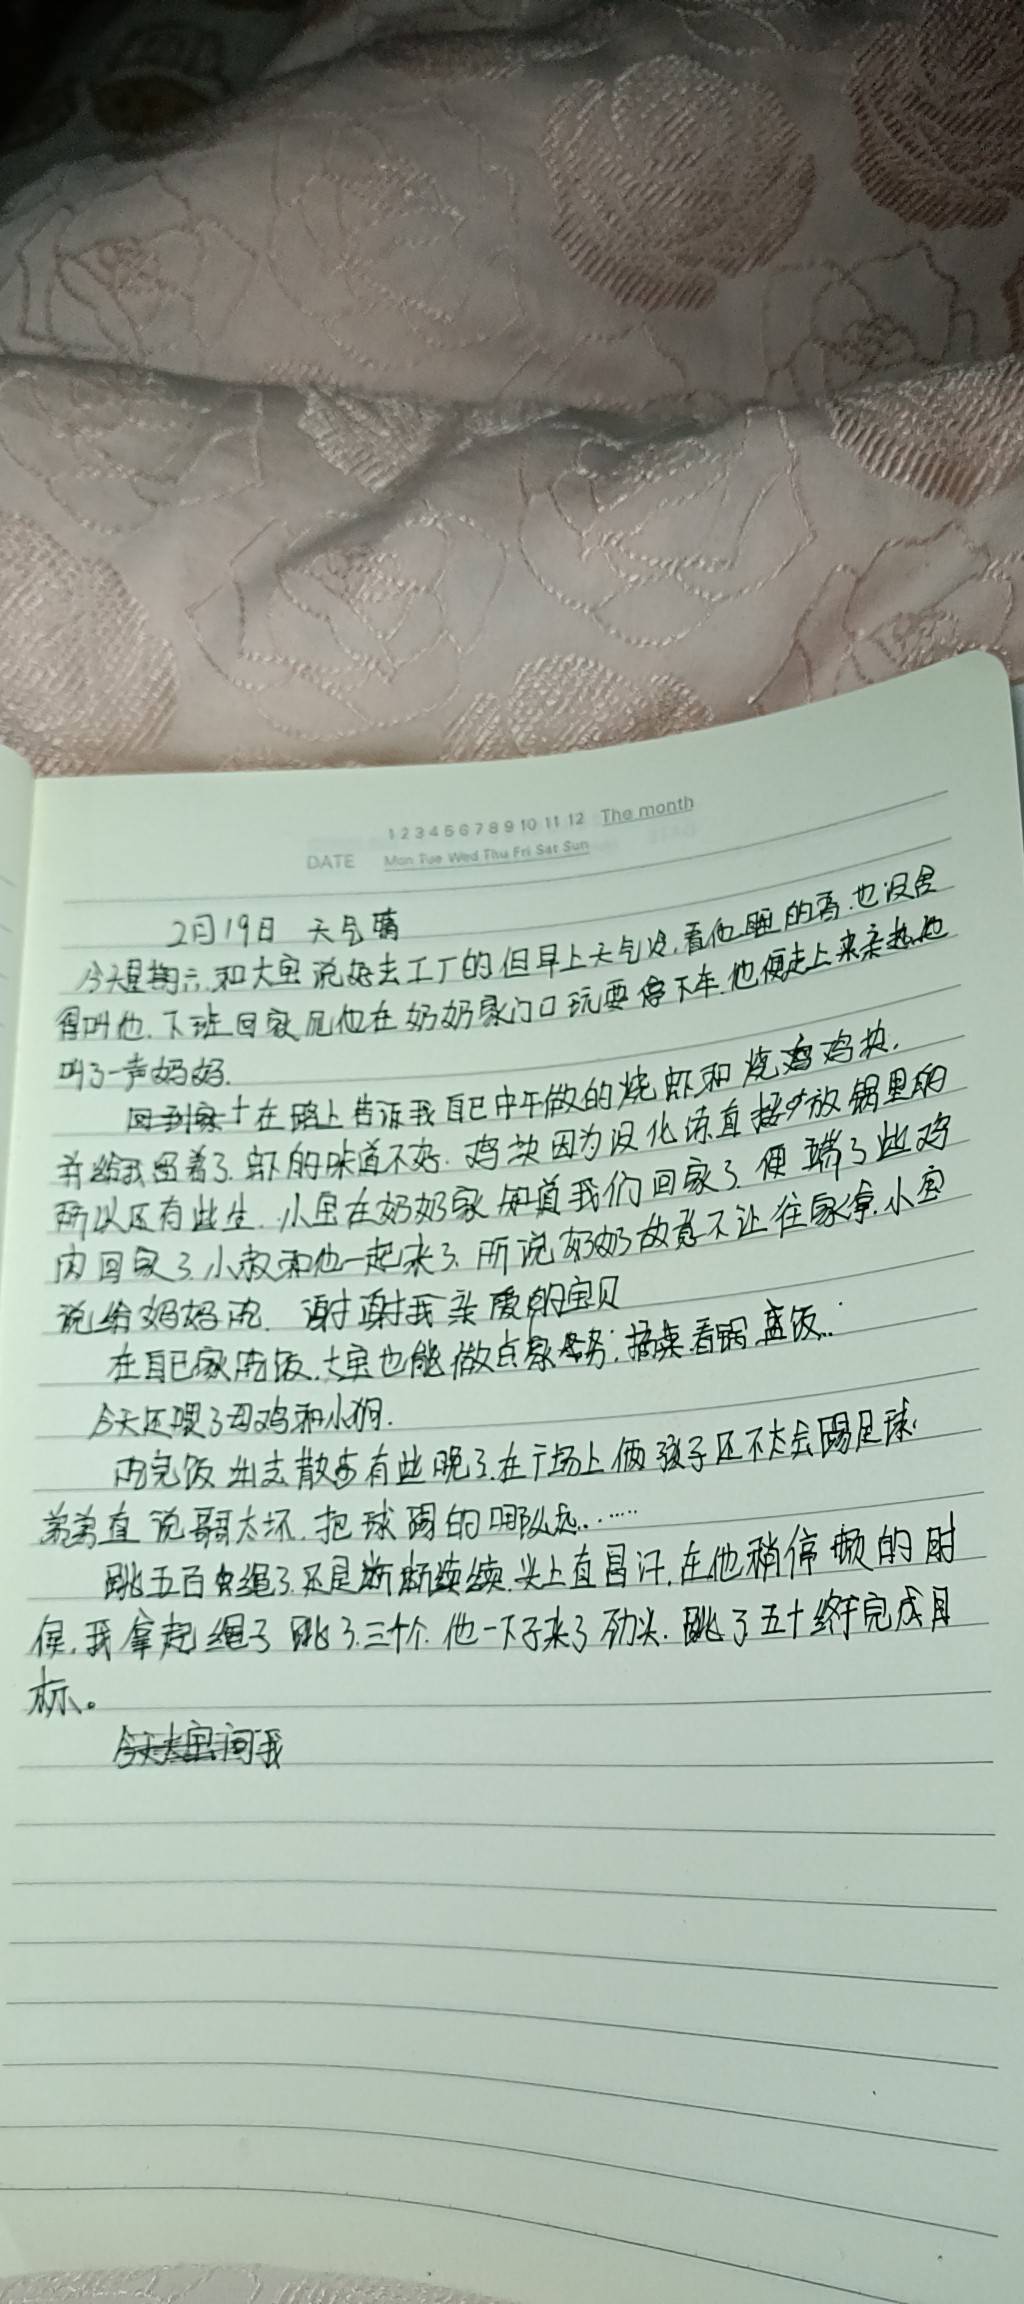 1 2 3 4 5 6 7 8 9 10 11 12 The month
DATE Mon Tue Wed Thu Fri Sat Sun
2月19日 天气晴
今天星期六.和大宝说好去工厂的但早上天气冷.看他睡的香.也没舍
得叫他.下班回家见他在奶奶家门口玩耍停下车.他便走上来亲热地
叫了一声妈妈.
回到家 在路上告诉我自己中午做的烧虾和烧鸡鸡块.
并给我留着了.虾的味道不好.鸡块因为没化冻直接放锅里的
所以还有些生.小宝在奶奶家知道我们回家了.便端了些鸡
肉回家了.小叔和他一起来了.听说奶奶故意不让往家拿.小宝
说给妈妈吃.谢谢我亲爱的宝贝
在自己家吃饭.大宝也能做点家务:摘菜.看锅.盛饭..
今天还喂了母鸡和小狗.
吃完饭出去散步有些晚了.在广场上俩孩子还不太会踢足球.
弟弟直说哥哥太坏.把球踢的那么远.……
跳五百个绳了.还是断断续续.头上直冒汗.在他稍停顿的时
候.我拿起绳子跳了.三十个.他一下子来了劲头.跳了五十终于完成目
标。
今天大宝问我